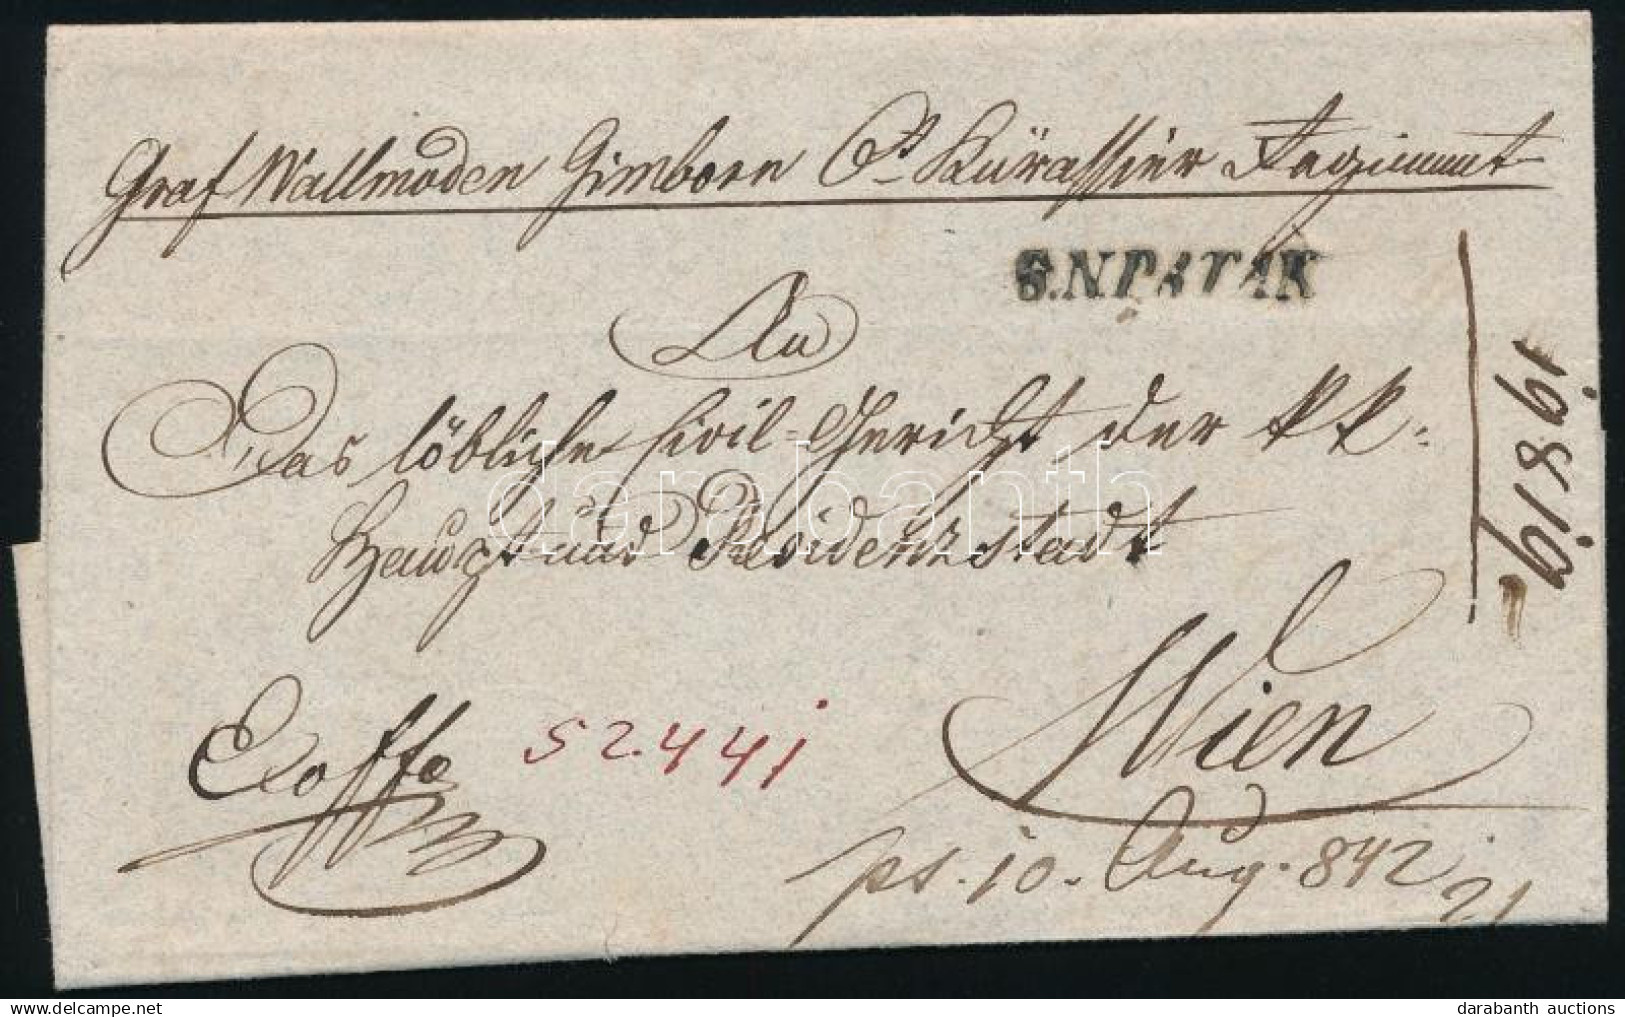 Graf Wallmoden Gimborn Ct Kürassier Regiment
S.N.PATAK
An
Das löbliche Civil=Gericht der k k:
Haupt und Residenzstadt
Wien
19819.
Exoffo
52.441
ps. 10. Aug. 842
21
darabanth
darabanth auctions